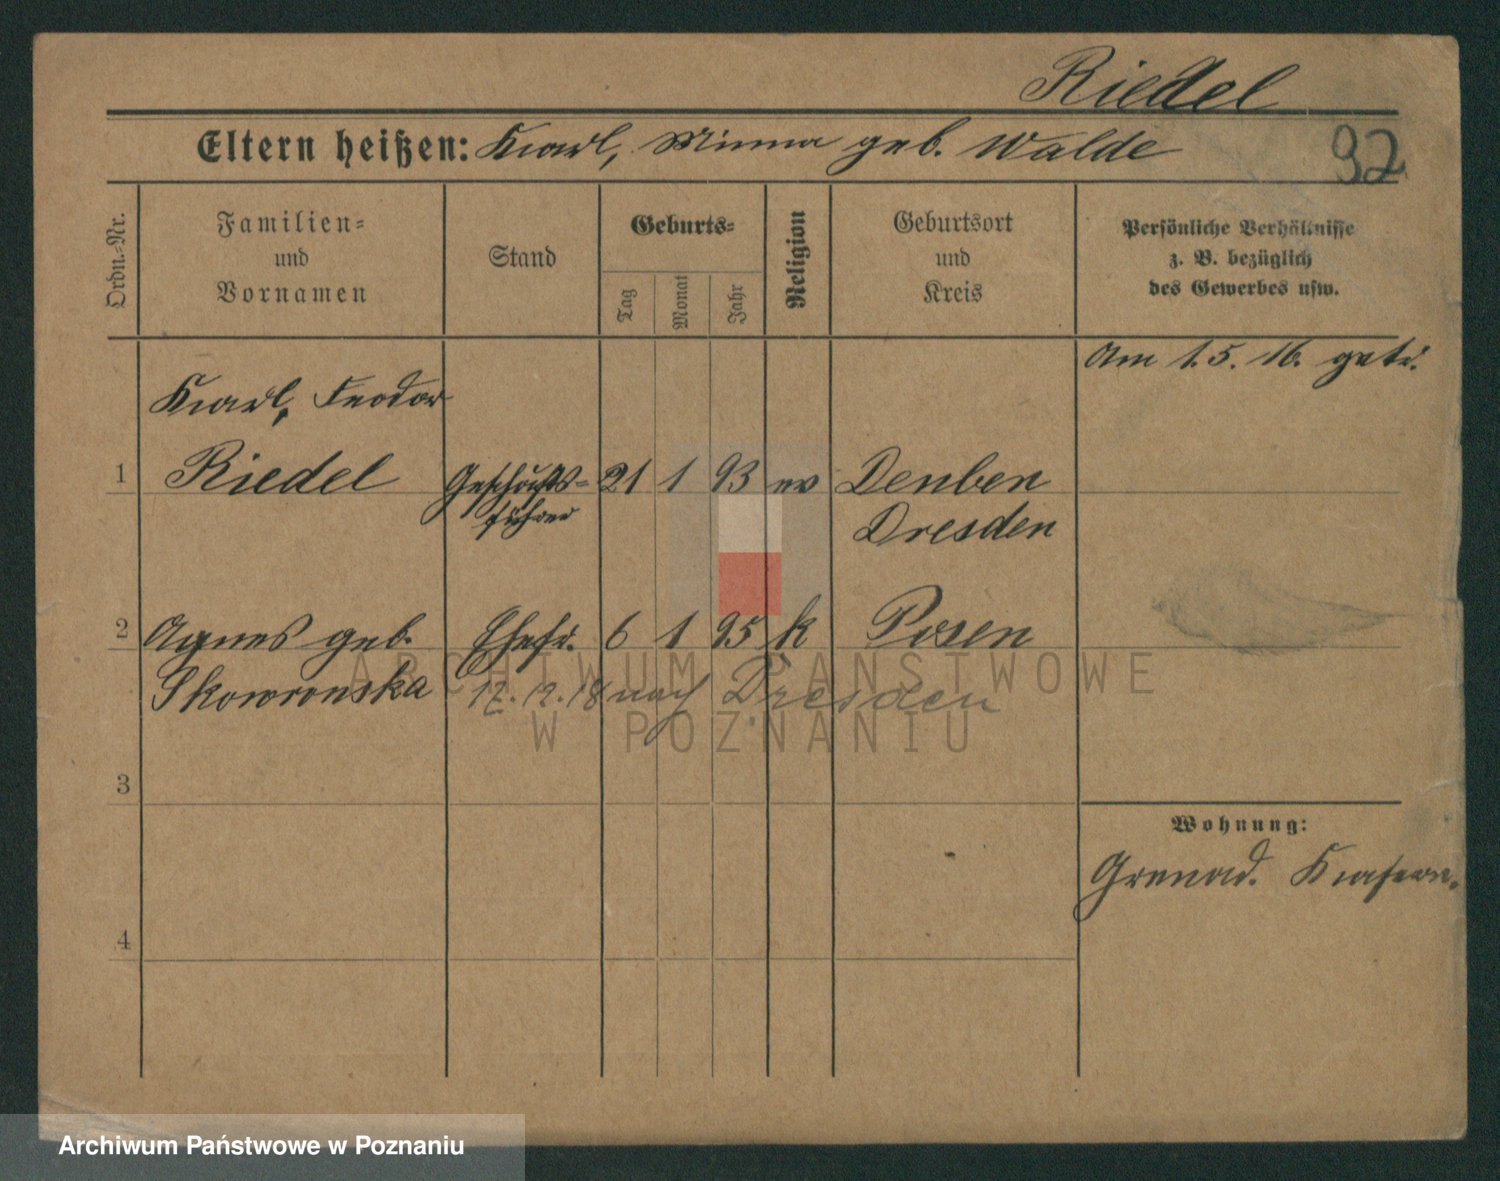 Riedel
Eltern heißen: Karl, Minna geb. Walde
92
Ordn.-Nr.
Familien-
und
Vornamen
Stand
Geburts-
Tag
Monat
Jahr
Religion
Geburtsort
und
Kreis
Persönliche Verhältnisse
z. B. bezüglich
des Gewerbes usw.
Am 1.5.16. getr.
Karl, Feodor
1 Riedel Geschäfts- 21 1 93 ev Deuben
führer Dresden
2 Agnes geb. Ehefr. 6 1 95 k Posen
Skowronska 17.12.18 nach Dresden
3
Wohnung:
Grenad. Kasern.
4
ARCHIWUM PAŃSTWOWE
W POZNANIU
Archiwum Państwowe w Poznaniu